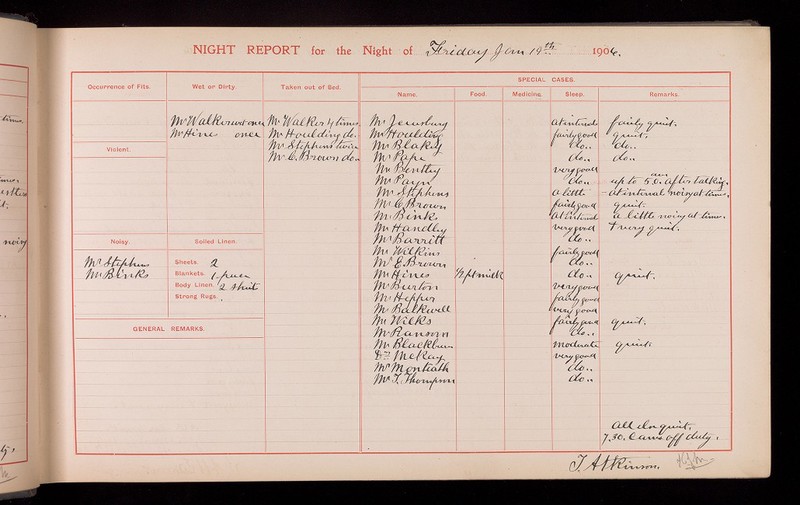 NIGHT REPORT for the Night of Friday Jan 19th 1906.
Occurrence of Fits. Wet or Dirty. Taken out of Bed. SPECIAL CASES.
Name. Food. Medicine. Sleep. Remarks.
Mr Walker wet once Mr Walker 4 times Mr Jewsbury at intervals fairly quiet.
Mr Hines once Mr Houlding do. Mr Houlding fairly good quiet.
Violent. Mr Stephens twice Mr Blakey do.. do..
Mr C. Brown do.. Mr Pape do.. do..
Mr Bentley very good
Mr Payn do.. up to 5.0. am after talking.
Mr Stephens a little at interval noisy at times.
Mr C. Brown fairly good quiet.
Mr Binks at intervals a little noisy at times.
Mr Handley very good & very quiet.
Noisy Soiled Linen. Mr Barritt do..
Mr Wilkins fairly good
Mr Stephens Sheets. 2 Mr E. Brown do..
Mr Binks Blankets. 1 Mr Hines ½ pt milk do.. quiet.
Body Linen. 2 shirt Mr Burton very good
Strong Rugs. Mr Hepper fairly good
Mr Balkwill very good
GENERAL REMARKS. Mr Wilks fairly good quiet.
Mr Ransom do..
Mr Blackburn moderate quiet
Dr McKay very good
Mr Monteath do..
Mr T. Thompson do..
All else quiet.
7.30. Came off duty.
T. Atkinson.